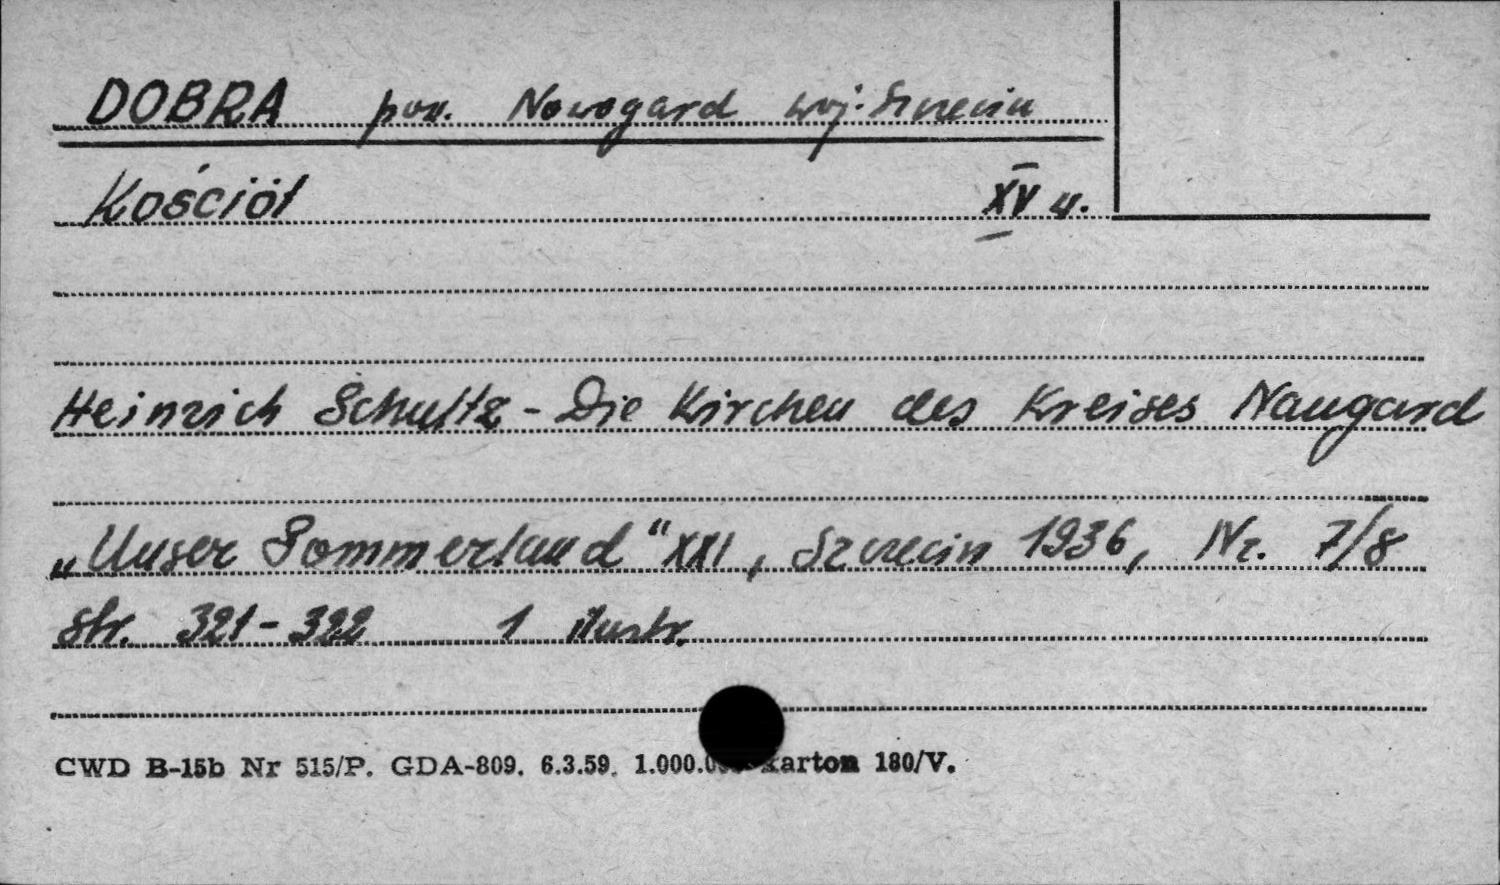 DOBRA pow. Nowogard woj. Szczecin
Kościół XV w.
Heinrich Schultz - Die Kirchen des Kreises Naugard
„Unser Pommerland" XXI, Szczecin 1936, Nr. 7/8
Str. 321-322 1 ilustr.
CWD B-15b Nr 515/P. GDA-809. 6.3.59. karton 180/V.